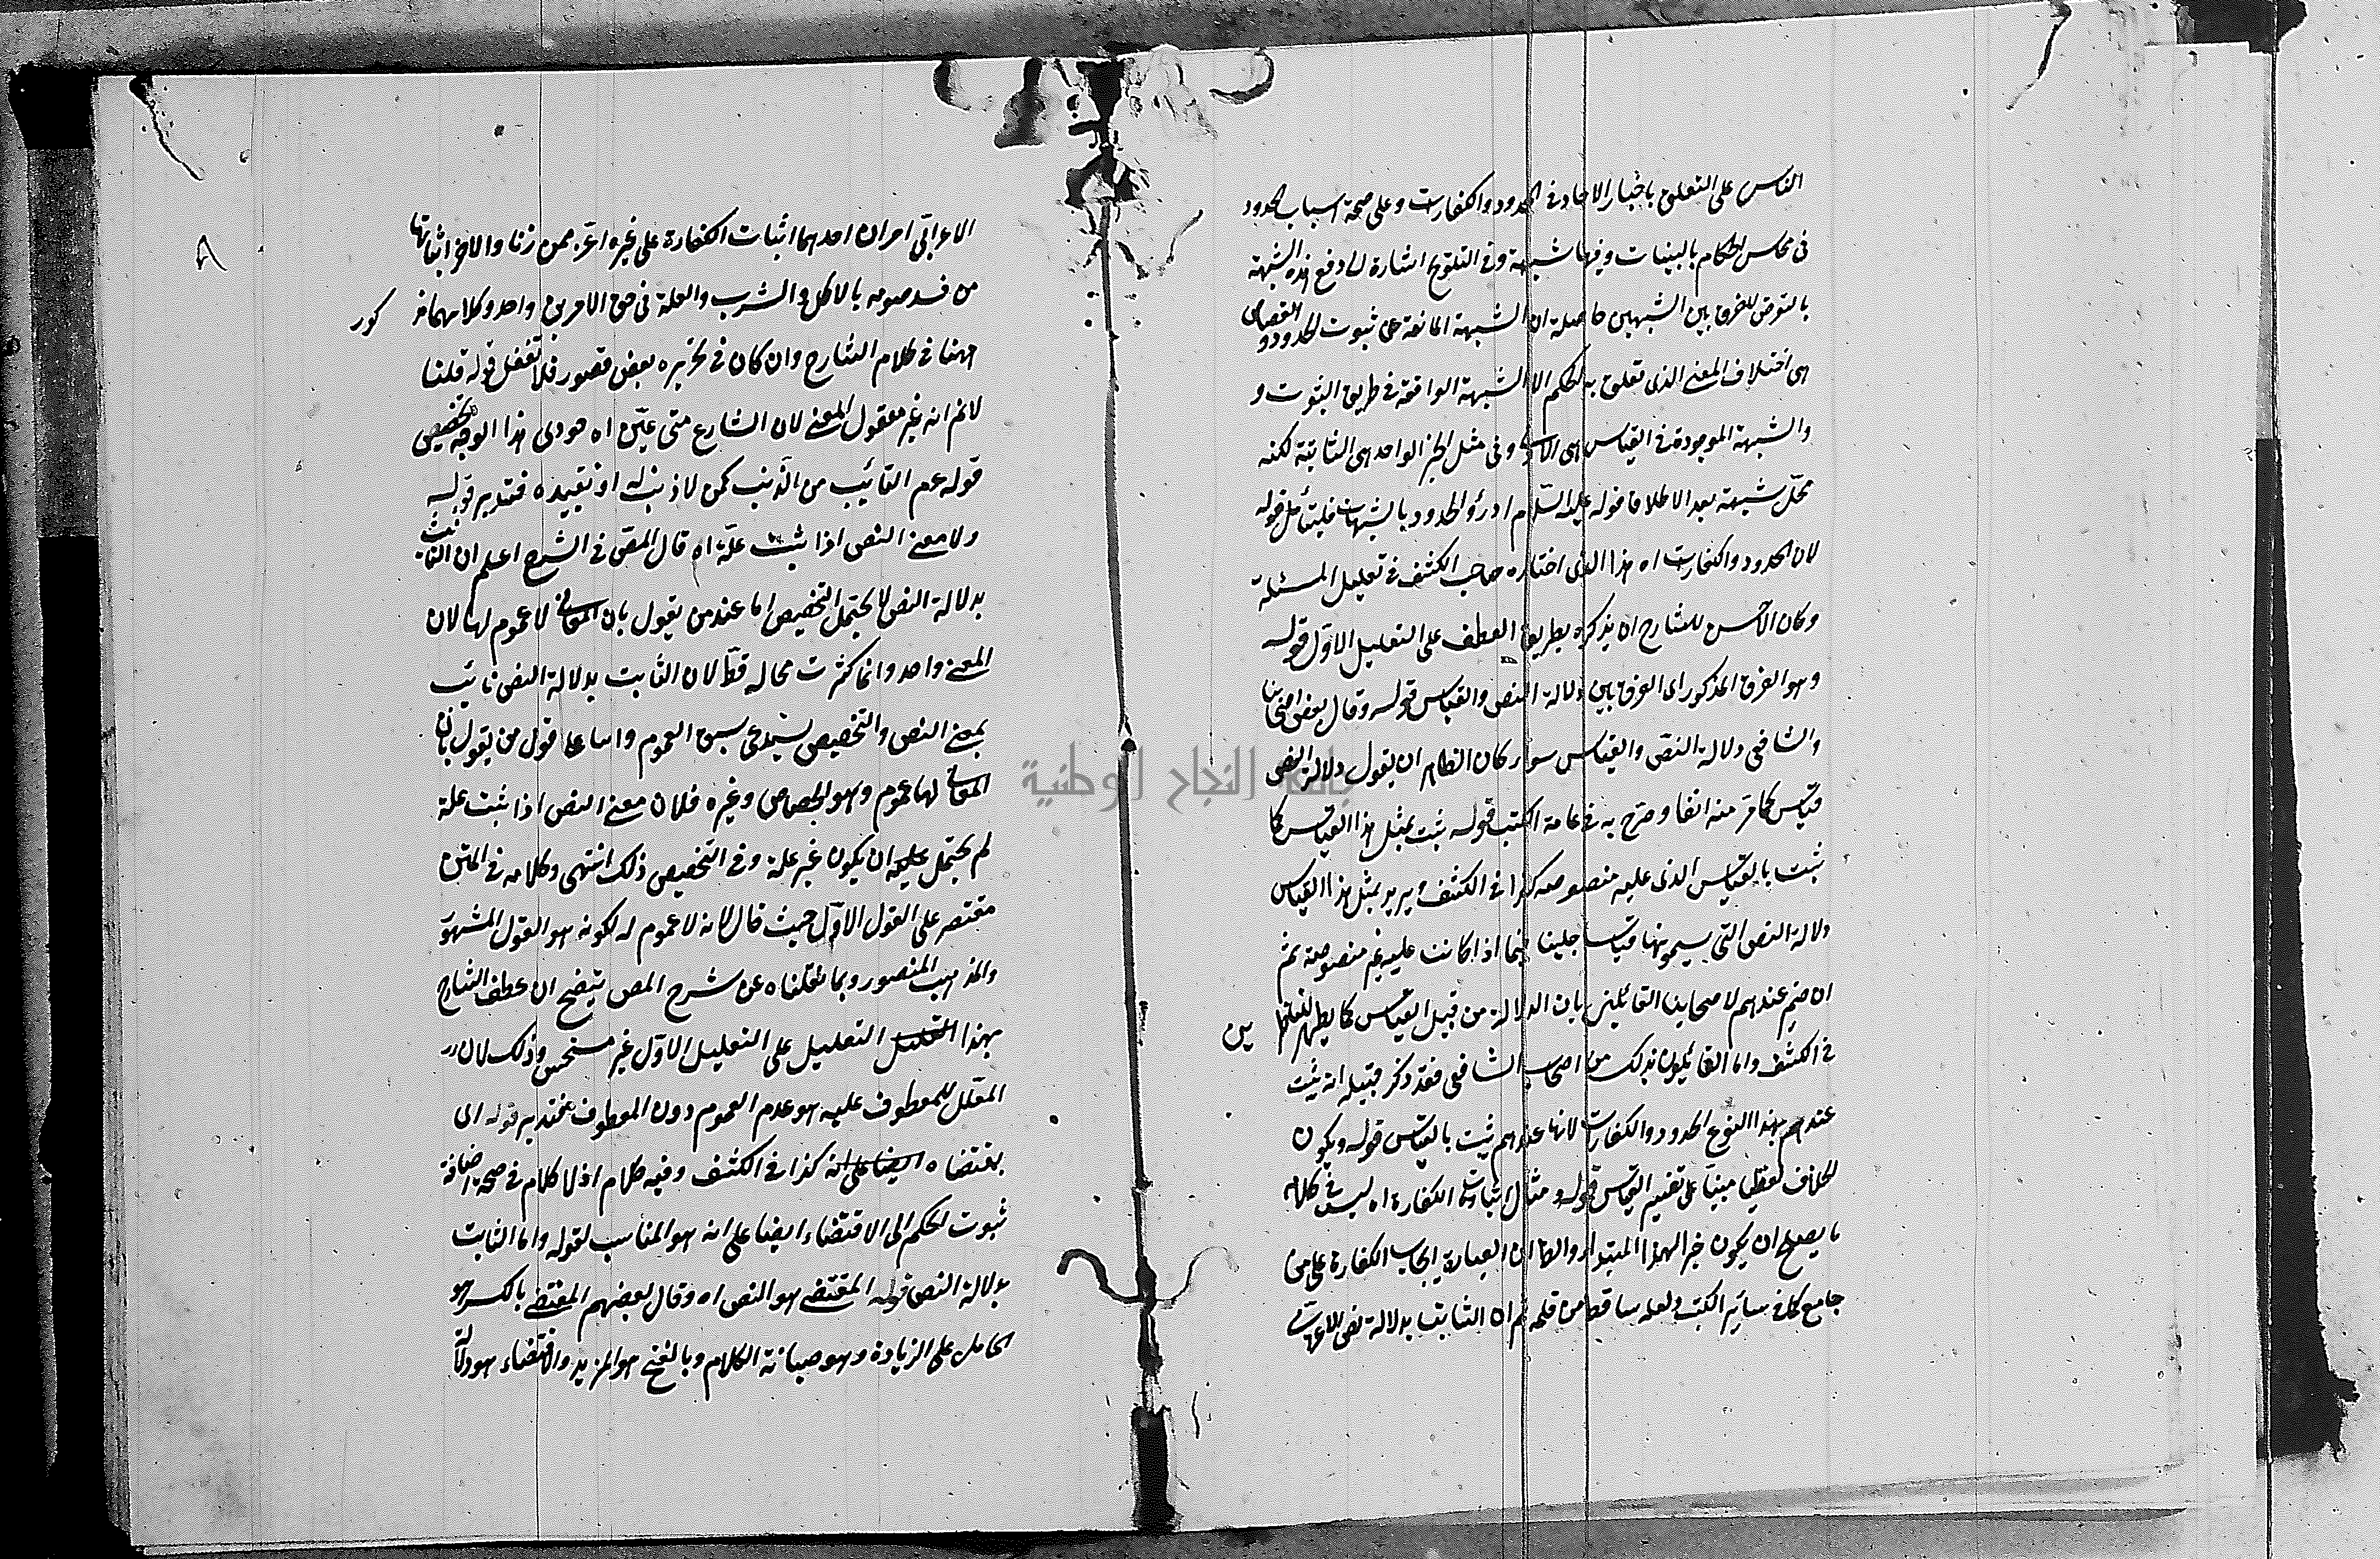 الناس على التعلق باخبار الاحاد في الحدود والكفارات وعلى صحة اسباب الحدود
في مجلس الحكام بالبينات وفيها شبهة وفي التلويح اشارة الى دفع هذه الشبهة
بالتعرض للفرق بين الشبهتين حاصله ان الشبهة المانعة عن ثبوت الحدود والقصاص
هي اختلاف المعنى الذي تعلق به الحكم لا الشبهة الواقعة في طريق الثبوت و
والشبهة الموجودة في القياس هي الاولى وفي مثل الخبر الواحد هي الثانية لكنه
محل شبهة بعد الاطلاق قوله عليه السلام ادرؤا الحدود بالشبهات فليتأمل قوله
لان الحدود والكفارات اه هذا الذي اختاره صاحب الكشف في تعليل المسئلة
وكان الاحسن للشارح ان يذكره بطريق العطف على التعليل الاول قوله
وهو الفرق المذكور اى الفرق بين دلالة النص والقياس قوله وقال بعض اصحابنا
والشافعى دلالة النص والقياس سواء كان الظاهر ان يقول دلالة النص
قياس كما مر منه انفا وصرح به في عامة الكتب قوله ثبت بمثل هذا القياس كما
ثبت بالقياس الذي عليه منصوصه كذا في الكشف يريد بمثل هذا القياس
دلالة النص التي يسمونها قياسا جليا فيما اذا كانت عليه غير منصوصة ثم
ان ضم عندهم لاصحابنا القائلين بان الدلالة من قبيل القياس كما يظهر للناظر
ين
في الكشف واما القائلون بذلك من اصحاب الشافعى فقد ذكر قبيله انه يثبت
عندهم بهذا النوع الحدود والكفارات لانها عندهم يثبت بالقياس قوله ويكون
الخلاف لفظيا مبنيا على تفسير القياس قوله ومثال اثبات الكفارة اه ليس في كلام
ما يصلح ان يكون خبرا لهذا المبتدا والظ ان العبارة ايجاب الكفارة على من
جامع كما في سائر الكتب ولعله ساقط من قلمه ثم ان الثابت بدلالة نص الاعرابي
٨
الاعرابى امران احدهما اثبات الكفارة على غيره اعنى ممن زنا والاخر اثباتها
من فسد صومه بالاكل و الشرب والعلة في حق الامرين واحد وكلاهما مذ كور
ههنا في كلام الشارح وان كان في تحريره بعض قصور فلا تغفل قوله قلنا
لانم انه غير معقول المعنى لان الشارع متى عين اه مودى هذا الوجه تخصيص
قوله عم التائب من الذنب كمن لا ذنب له او تقييده فتدبر قوله
ولا معنى النص اذا ثبت علة اه قال المص في الشرح اعلم ان الثابت
بدلالة النص لا يحتمل التخصيص اما عند من يقول بان المعانى لا عموم لها لان
المعنى واحد وانما كثرت محاله فظ لان الثابت بدلالة النص ثابت
بمعنى النص والتخصيص يستدعى سبق العموم واما على قول من يقول بان
المعانى لها عموم وهو الجصاص وغيره فلان معنى النص اذا ثبت علة
لم يحتمل عليه ان يكون غير علة وفي التخصيص ذلك انتهى وكلامه في المتن
مقتصر على القول الاول حيث قال لانه لا عموم له لكونه هو القول المشهور
والمذهب المنصور وبما نقلناه عن شرح المص يتضح ان عطف الشارح
بهذا التعليل التعليل على التعليل الاول غير مستحسن وذلك لان
المعلل للمعطوف عليه هو عدم العموم دون المعطوف فتدبر قوله الى
بمقتضاه ايضا على انه كذا في الكشف وفيه كلام اذ لا كلام في صحة اضافة
ثبوت الحكم الى الاقتضاء ايضا على انه هو المناسب لقوله واما الثابت
بدلالة النص قوله المقتضى هو النص اه وقال بعضهم المقتضى بالكسر هو
الحامل على الزيادة وهو صيانة الكلام وبالفتح هو المزيد والاقتضاء هو دلالة
جامعة النجاح الوطنية